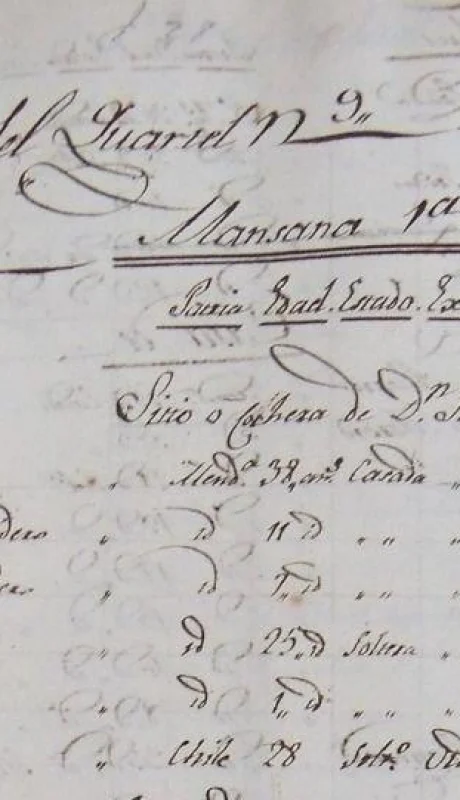 del Quartel N 9,,
Mansana 1a
Patria. Edad. Estado.
Sitio o Cochera de D.n
,, Mend.a 38,, an.s Casada ,,
,, id 11 id ,, ,,
,, id 7,, id ,, ,,
,, id 25,, id Soltera ,,
,, id 1,, id ,, ,,
,, Chile 28 Solt.o